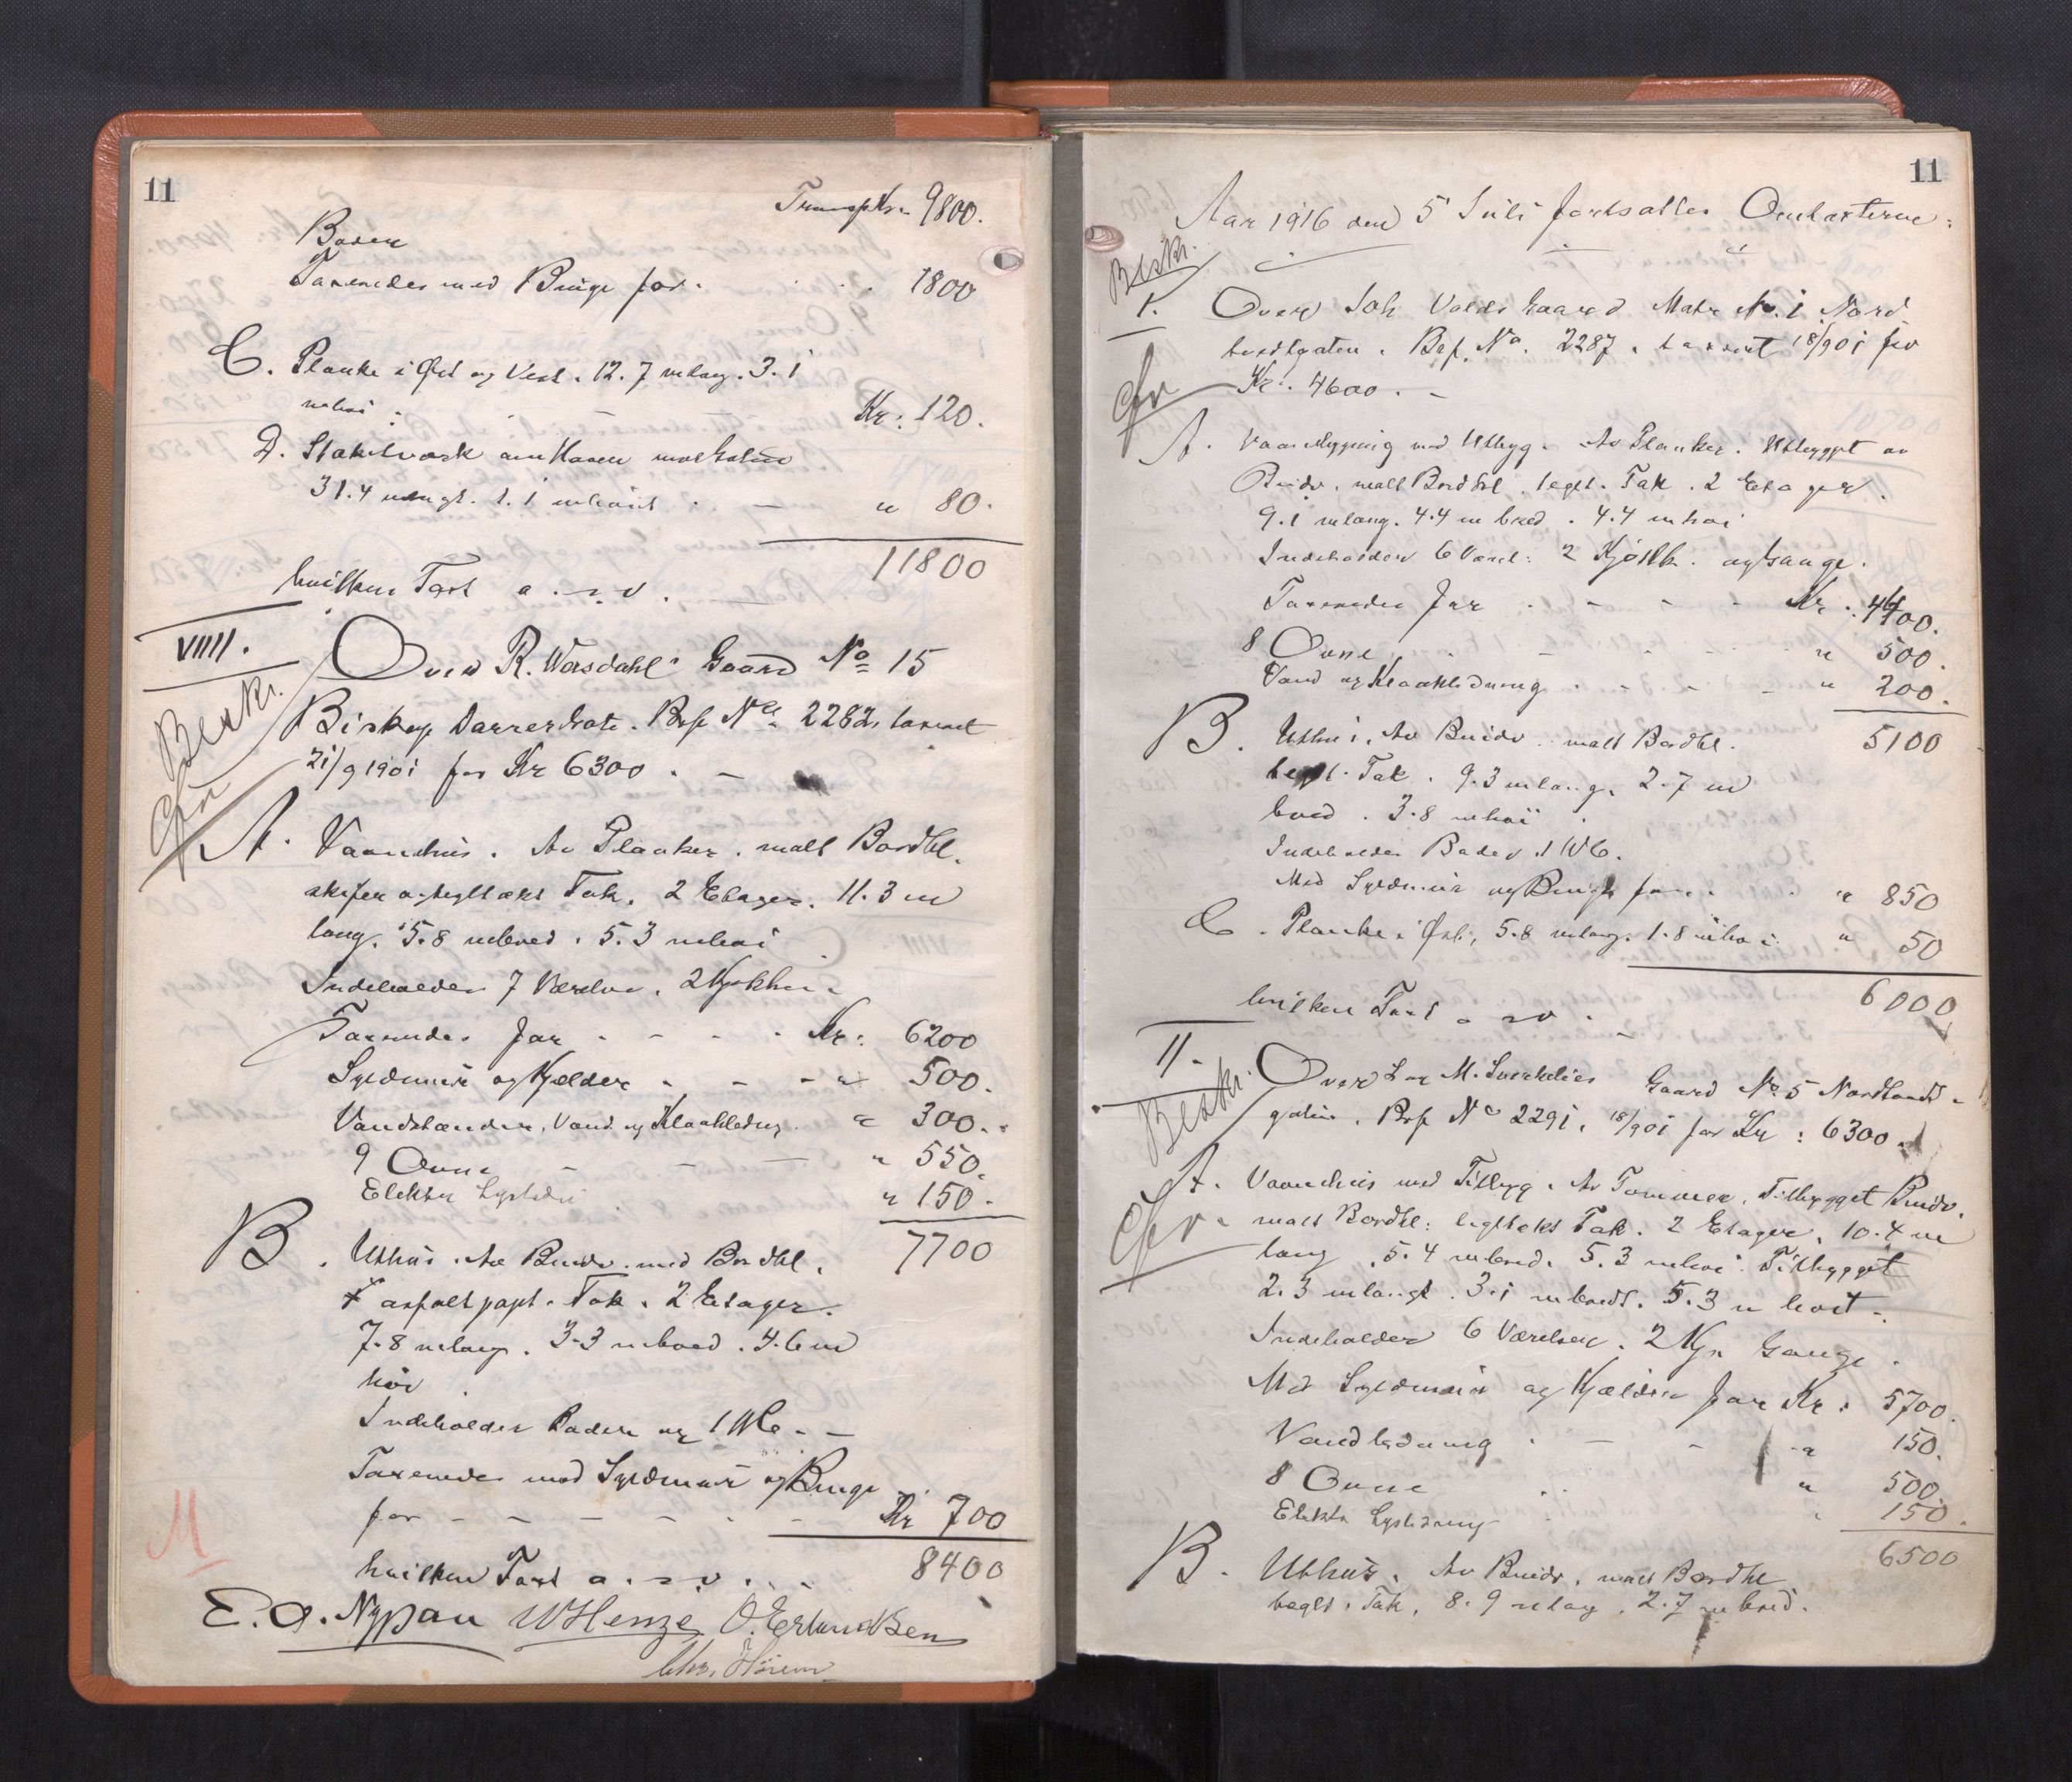 11
Transp Kr. 9800.
Boder
Taxeredes med Binge for. 1800
C. Planke i Øst og Vest. 12.7 m lang. 3.1
m høi Kr. 120.
D. Stakitværk om Haven mod Gaten
31.4 m lngt. 1.1 m høit " 80.
11800
hvilken Taxt o. s. v.
VIIII.
Over R. Worsdahl's Gaard No 15
Beskr.
Biskop Darres Gate. Brf No 2282, taxeret
21/9 1901 for Kr 6300. –
A. Vaanehus. Av Planker. malt Bordkl.
skifer og tegltækt Tak. 2 Etager. 11.3 m
lang. 5.8 m bred. 5.3 m høi
Indeholder 7 Værelser, 2 Kjøkken
Taxeredes for Kr: 6200
Syldmur og Kjælder " 500.
Vandstænder, Vand og Kloakledng. " 300.
9 Ovne " 550.
Elektr Lysledn " 150.
7700
B. Uthus. Av Bindv. med Bordkl.
asfaltpapt. Tak. 2 Etager.
7.8 m lang. 3.3 m bred. 4.6 m
høi
Indeholder Boder og 1 Wc. –
Taxeredes med Syldmur og Binge
for Kr 700
M
hvilken Taxt o. s. v. 8400
E. A. Nypan W Henze O. Erlandsen
Chr.
11
Aar 1916 den 5 Juli fortsattes Omtaxterne:
Beskr.
1. Over Joh Volds Gaard Matr No. 1 Nord
bredtgaten. Brf. No. 2287. taxeret 18/9 01 for
Kr. 4600. –
A. Vaanebygning med Utbyg. Av Planker. Utbygget av
Bindv. malt Bordkl. teglt. Tak. 2 Etager.
9.1 m lang. 4.4 m bred. 4.4 m høi
Indeholder 6 Værel: 2 Kjøkk. og Gange.
Taxeredes for Kr. 4400.
8 Ovne " 500.
Vand og Kloakledning " 200.
B. Uthus. Av Bindv. malt Bordkl. 5100
teglt. Tak. 9.3 m lang. 2.7 m
bred. 3.8 m høi
Indeholder Boder. 1 WC.
Med Syldmur og Binge for " 850
C. Planke i Øst. 5.8 m lang. 1.8 m høi " 50
hvilken Taxt o s v. 6000
II.
Beskr.
Over M. Gaard No. 5 Nordbredt
gaten. Brf No 2291. 18/9 01 for Kr: 6300
A. Vaanehus med Tilbyg. Av Tømmer. Tilbygget Bindv.
malt Bordkl: tegltækt Tak. 2 Etager. 10.4 m
lang. 5.4 m bred. 5.3 m høi. Tilbygget
2.3 m langt. 3.1 m bredt. 5.3 m høit.
Indeholder 6 Værelser. 2 Kj. Gange.
Med Syldmur og Kjælder for Kr: 5700.
Vandledning " 150.
8 Ovne " 500.
Elektr Lysledning 150.
B. Uthus. Av Bindv. malt Bordkl 6500
teglt. Tak. 8.9 m lang. 2.7 m bred.